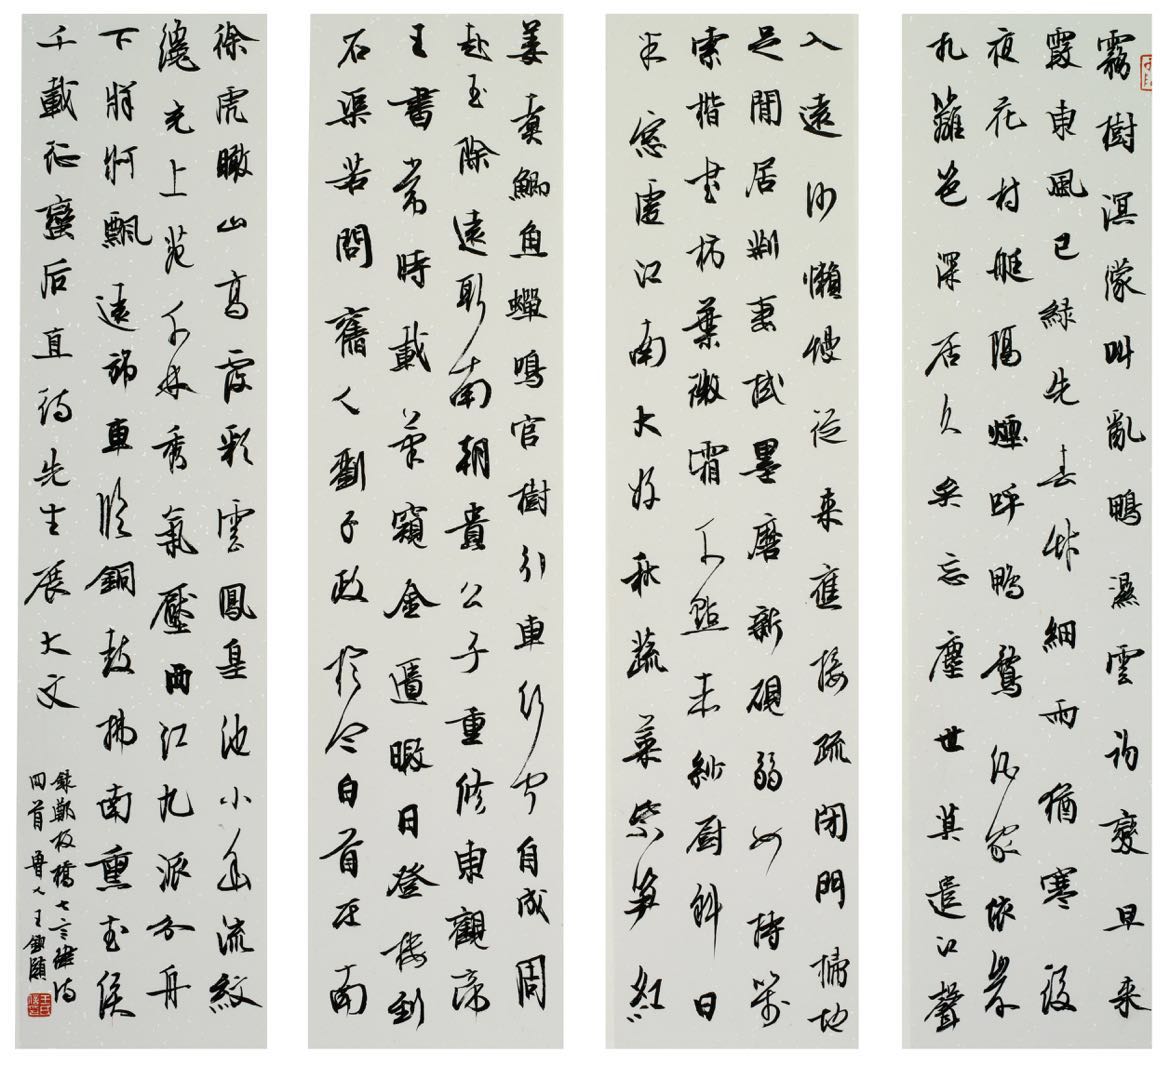 霧樹溟濛叫亂鴨濕雲初變早来
霞東風已綠先春艸細雨猶寒後
夜花村艇隔煙呼鴨鶩酒家依岸
扎籬笆深居久矣忘塵世莫遣江聲
入遠沙懶慢從来應接疏閉門掃地
足閒居荆妻拭墨磨新硯弱女持箋
索楷書柿葉微霜千點赤紗厨斜日
半窓虛江南大好秋蔬菜紫笋紅
薑煮鯽魚蟬鳴官樹引車行自成周
赴玉除遠取南朝貴公子重修東觀帝
王書常時載筆窺金匱暇日登樓到
石渠若問舊人劉子政於今白首在南
徐虎瞰山高霞彩雲鳳皇池小流紋
纔充上苑千林秀氣壓西江九派分舟
下牂牁飄遠旆車臨銅鼓拂南熏武侯
千載征蠻后直待先生展大文
錄鄭板橋七言律詩
四首 魯人王